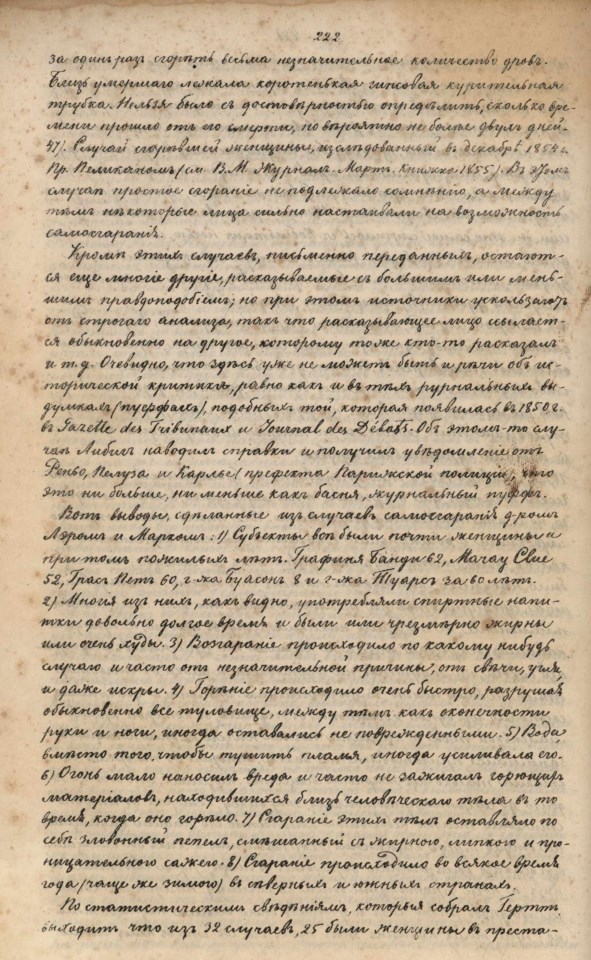 222
за одинъ разъ сгорѣть весьма незначительное количество дровъ.
Близь умершаго лежала коротенькая гипсовая курительная
трубка. Нельзя было съ достовѣрностью опредѣлить, сколько вре-
мени прошло отъ его смерти, но вѣроятно не болѣе двухъ дней.
47). Случай сгорѣвшей женщины, изслѣдованный въ декабрѣ 1854 г.
Пр. Пеликаномъ (см. В. М. Журнал. Мартъ. Книжка 1855). Въ этомъ
случаѣ простое сгораніе не подлежало сомнѣнію, а между
тѣмъ нѣкоторые лица сильно настаивали на возможность
самосгаранія.
Кромѣ этихъ случаевъ, письменно переданныхъ, остают-
ся еще многіе другіе, разсказываемые съ большимъ или мень-
шимъ правдоподобіемъ; но при этомъ источники ускользаютъ
отъ строгаго анализа, такъ что разсказывающее лицо ссылает-
ся обыкновенно на другое, которому тоже кто-то разсказалъ
и т. д. Очевидно, что здѣсь уже не можетъ быть и рѣчи объ ис-
торической критикѣ, равно какъ и въ тѣхъ журнальныхъ вы-
думкахъ (пуффахъ), подобныхъ той, которая появилась въ 1850 г.
въ Gazette des Tribunaux и Journal des Débats. Объ этомъ-то слу-
чаѣ Либихъ наводилъ справки и получилъ увѣдомленіе отъ
Реньо, Пелуза и Карлье (префекта Парижской полиціи), что
это ни больше, ни меньше какъ басня, журнальный пуффъ.
Вотъ выводы, сдѣланные изъ случаевъ самосгаранія д-ромъ
Лэромъ и Маркомъ: 1) Субъекты воп. были почти женщины и
при томъ пожилыхъ лѣтъ. Графиня Банди 62, Мачау Clue
52, Грас Петъ 60, г-жа Буасонъ 8 и г-жа Туарсъ за 60 лѣтъ.
2) Многія изъ нихъ, какъ видно, употребляли спиртные напи-
тки довольно долгое время и были или чрезмѣрно жирны
или очень худы. 3) Возгараніе происходило по какому нибудь
случаю и часто отъ незначительной причины, отъ свѣчи, угля,
и даже искры. 4) Горѣніе происходило очень быстро, разрушая
обыкновенно все туловище, между тѣмъ какъ оконечности
руки и ноги, иногда оставались не поврежденными. 5) Вода,
вмѣсто того, чтобы тушить пламя, иногда усиливала его.
6) Огонь мало наносилъ вреда и часто не зажигалъ горющихъ
матеріаловъ, находившихся близь человѣческаго тѣла въ то
время, когда оно горѣло. 7) Сгараніе этихъ тѣлъ оставляло по
себѣ зловонный пепелъ, смѣшанный съ жирною, липкою и про-
ницательного сажею. 8) Сгараніе происходило во всякое время
года (чаще же зимою) въ сѣверныхъ и южныхъ странахъ.
По статистическимъ свѣдѣніямъ, которыя собралъ Гертть,
выходитъ что изъ 32 случаевъ, 25 были женщины въ преста-